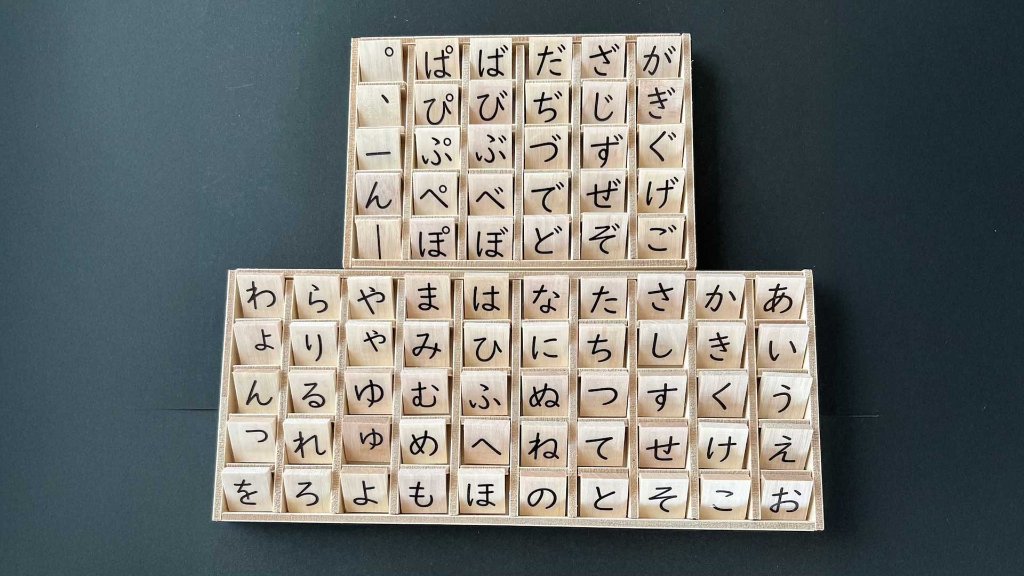 がぎぐげご
ざじずぜぞ
だぢづでど
ばびぶべぼ
ぱぴぷぺぽ
。、ーん｜
あいうえお
かきくけこ
さしすせそ
たちつてと
なにぬねの
はひふへほ
まみむめも
やゃゆゅよ
らりるれろ
わょんっを